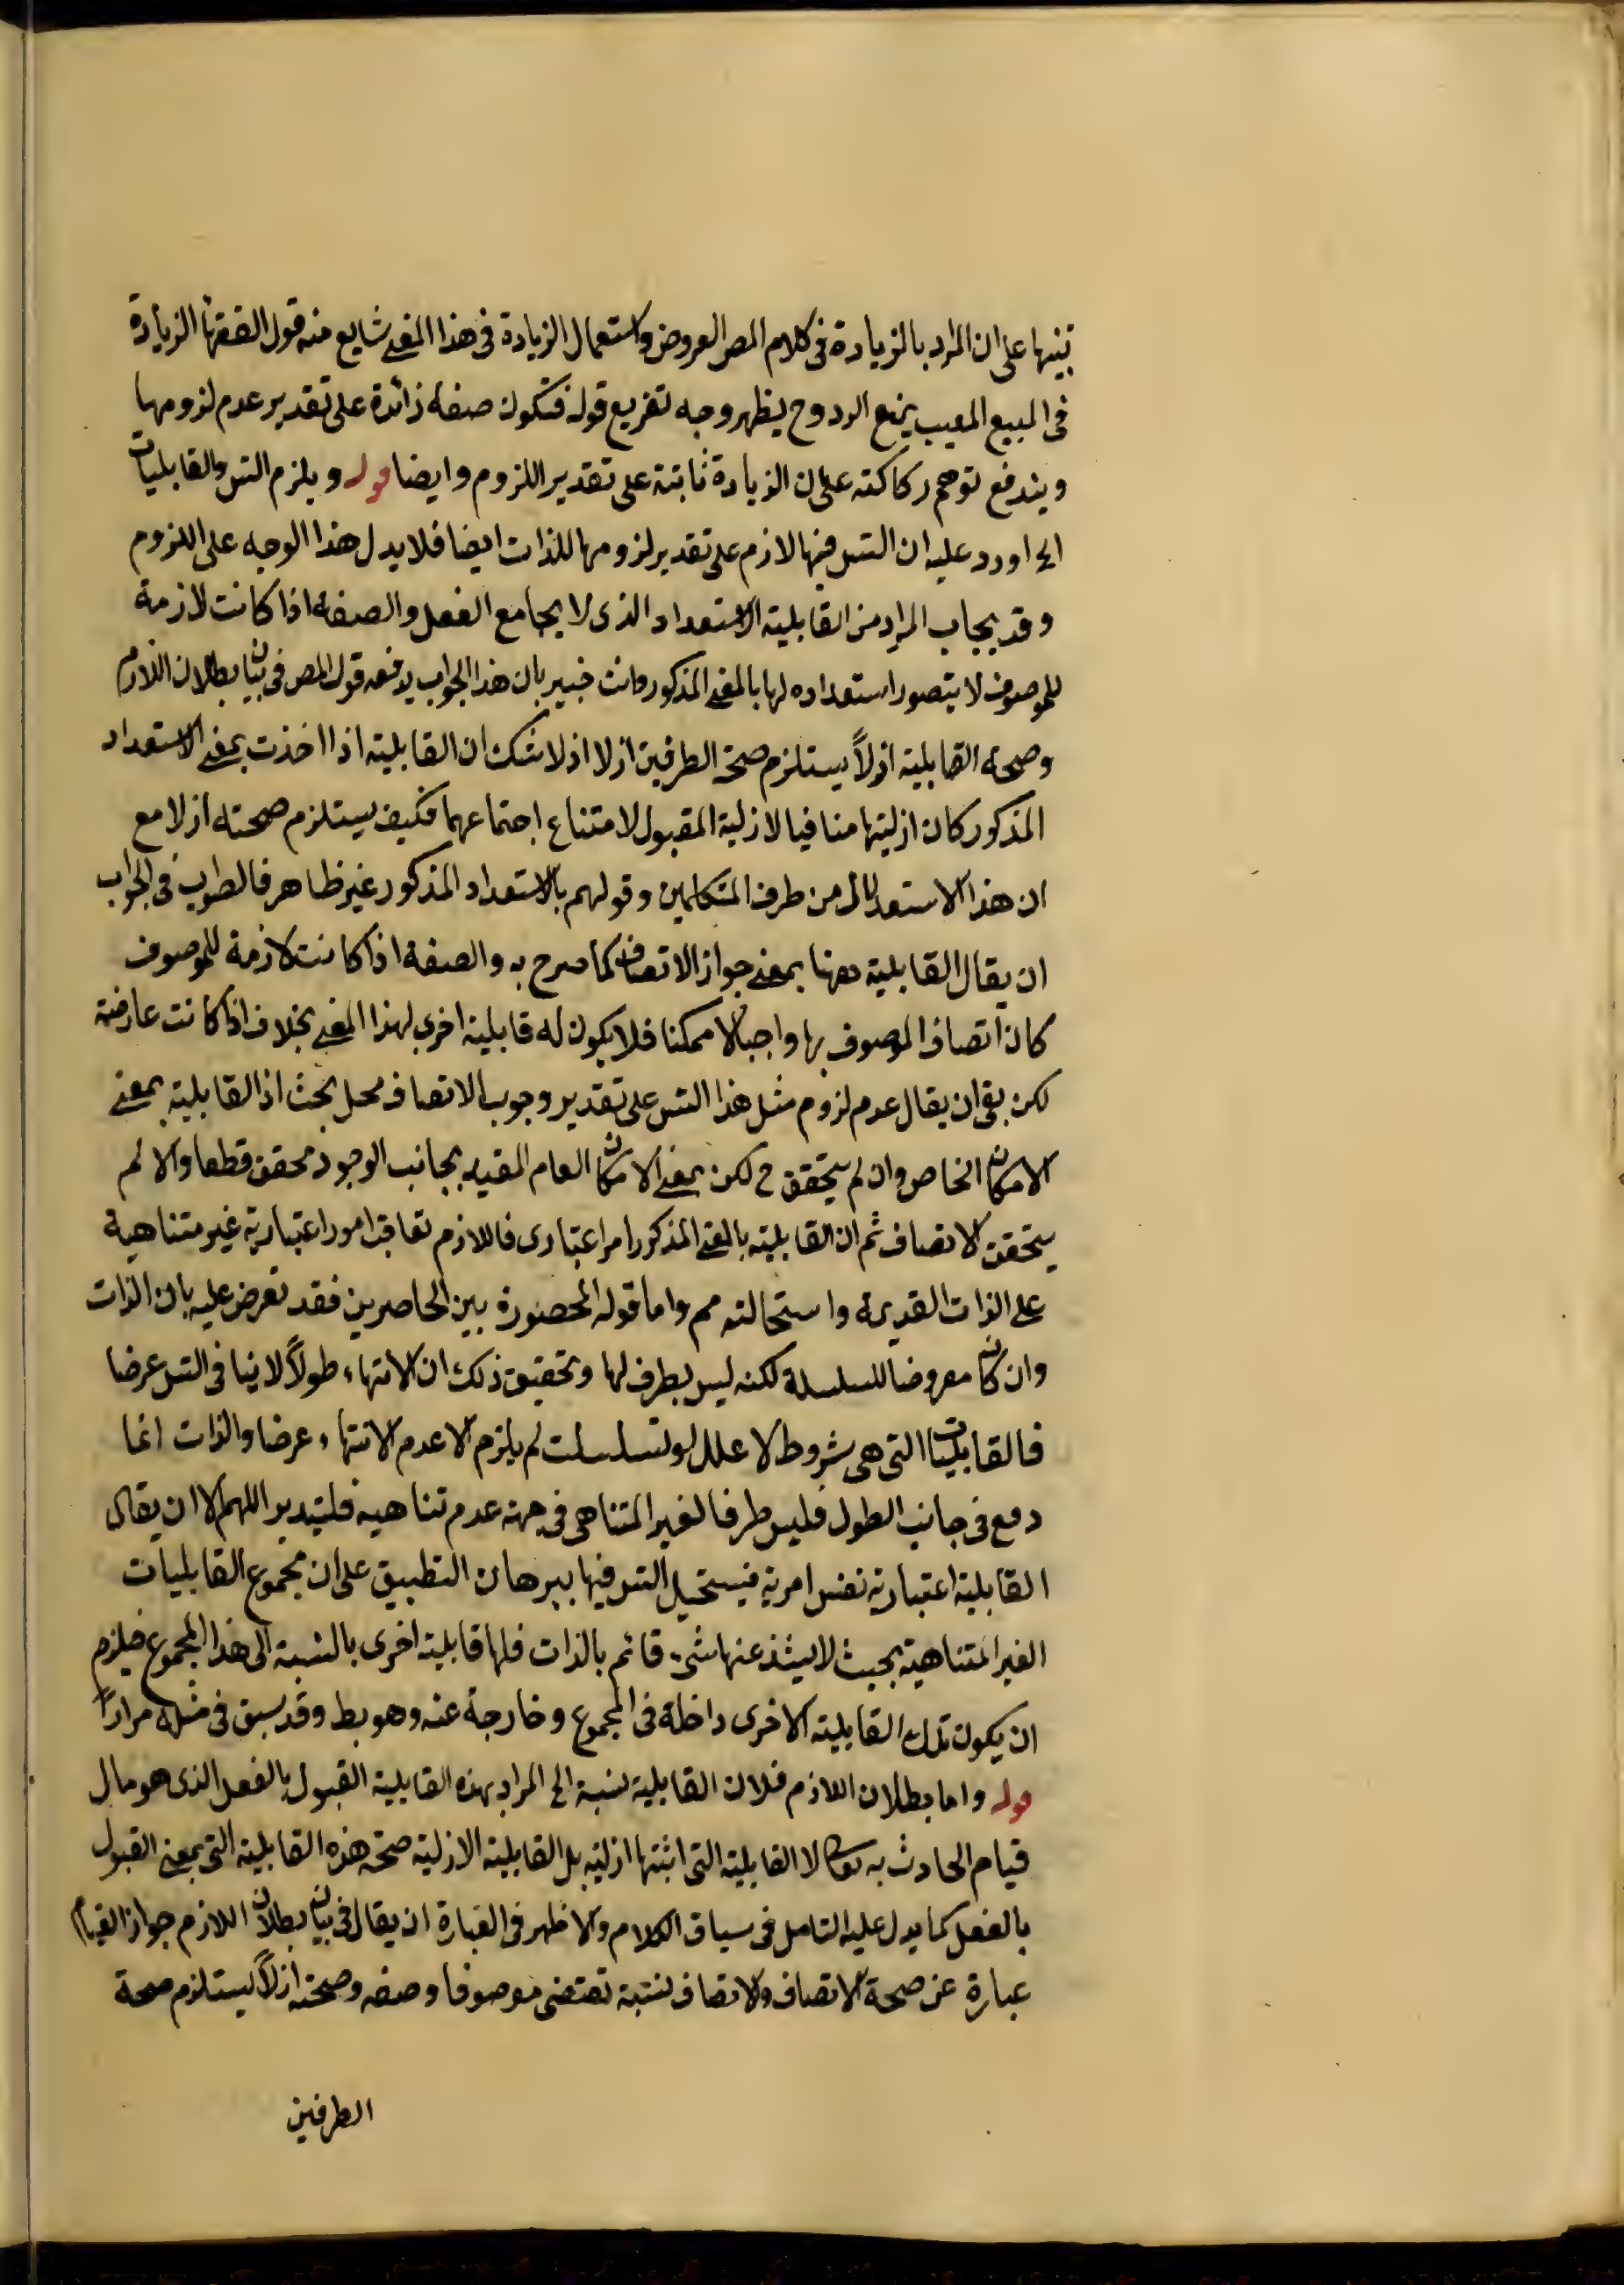 تنبيها على ان المراد بالزيادة فى كلام المص العروض واستعمال الزيادة فى هذا المعنى شايع منه قول الفقهاء الزيادة
فى المبيع المعيب يمنع الرد وح يظهر وجه تفريع قوله فتكون صفة زائدة على تقدير عدم لزومها
ويندفع توهم ركاكته على ان الزيادة ثابتة على تقدير اللزوم وايضا قوله ويلزم التس والقابليات
الخ اورد عليه ان التس فيها لازم على تقدير لزومها للذات ايضا فلا يدل هذا الوجه على اللزوم
وقد يجاب المراد من القابلية الاستعداد الذى لا يجامع الفعل والصفة اذا كانت لازمة
للموصوف لا يتصور استعداده لها بالمعنى المذكور وانت خبير بان هذا الجواب يدفعه قول المص فى بيان بطلان اللازم
وصحة القابلية ازلاً يستلزم صحة الطرفين ازلا اذ لا شك ان القابلية اذا اخذت بمعنى الاستعداد
المذكور كان ازليتها منافيا لازلية المقبول لامتناع اجتماعهما فكيف يستلزم صحته ازلا مع
ان هذا الاستدلال من طرف المتكلمين وقولهم بالاستعداد المذكور غير ظاهر فالصواب فى الجواب
ان يقال القابلية ههنا بمعنى جواز الاتصاف كما صرح به والصفة اذا كانت لازمة للموصوف
كان اتصاف الموصوف بها واجبا لا ممكنا فلا يكون له قابلية اخرى لهذا المعنى بخلاف اذا كانت عارضة
لكن بقى ان يقال عدم لزوم مثل هذا التس على تقدير وجوب الاتصاف محل بحث اذ القابلية بمعنى
الامكان الخاص وان لم يتحقق ح لكن بمعنى الامكان العام المقيد بجانب الوجود محقق قطعا والا لم
يتحقق الاتصاف ثم ان القابلية بالمعنى المذكور امر اعتبارى فاللازم تعاقب امور اعتبارية غير متناهية
على الذات القديمة واستحالته مم واما قوله المحصورة بين الحاصرين فقد تعرض عليه بان الذات
وان كان معروضا للسلسلة لكنه ليس بطرف لها وتحقيق ذلك ان الانتهاء طولاً لا ينافى التس عرضا
فالقابليات التى هى شروط لا علل لو تسلسلت لم يلزم الا عدم الانتهاء عرضا والذات انما
وقع فى جانب الطول فليس طرفا لغير المتناهى فى جهة عدم تناهيه فليتدبر اللهم الا ان يقال
القابلية اعتبارية نفس امرية فيستحيل التس فيها ببرهان التطبيق على ان مجموع القابليات
الغير المتناهية بحيث لا يشذ عنها شئ قائم بالذات فلها قابلية اخرى بالنسبة الى هذا المجموع فيلزم
ان يكون تلك القابلية الاخرى داخلة فى المجموع وخارجة عنه وهو بط وقد سبق فى مثله مراراً
قوله واما بطلان اللازم فلان القابلية نسبة الخ المراد بهذه القابلية القبول بالفعل الذى هو مال
قيام الحادث به تعالى لا القابلية التى اثبتها ازلية بل القابلية الازلية صحة هذه القابلية التى بمعنى القبول
بالفعل كما يدل عليه التامل فى سياق الكلام والاظهر فى العبارة ان يقال فى بيان بطلان اللازم جواز القيام
عبارة عن صحة الاتصاف والاتصاف نسبة تقتضى موصوفا وصفة وصحته ازلاً يستلزم صحة
الطرفين